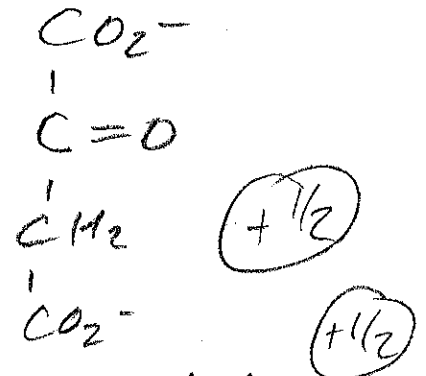 CO₂⁻
C=O
CH₂ +1/2
CO₂⁻ +1/2